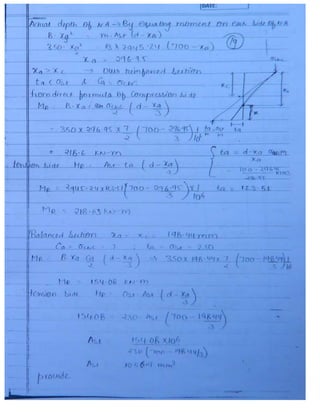 DATE:
Actual depth of NA → By equating moment on each side of NA
B·xa²/2 = m·Ast (d - xa)
350· = 13 × 2945.24 (700 - xa)
xa = 296.95
xa > xc → Over reinforced section
ta < σst & Ca = σcbc
from direct formula of compression side
MR = B·xa σcbc/2 (d - xa/3)
= 350 × 296.95 × 7/2 (700 - 296.95/3) 1/10⁶
= 218.6 KN-m
ta = d-xa
xa
700 - 296.95
296.95
tension side MR = Ast ta (d - xa/3)
MR = 2945.24 × (700 - 296.95/3) × 1/10⁶
ta = 123.51
MR = 218.63 KN-m
Balanced section xa = xc = 198.44 mm
Ca = σcbc = 7 ; ta = σst = 230
MR = B xa Ca/2 (d - xa/3) ⇒ 350 × 198.44 × 7/2 (700 - 198.44/3) 1/10⁶
MR = 154.08 KN-m
tension side MR = σst Ast (d - xa/3)
154.08 = 230 Ast (700 - 198.44/3)
Ast = 154.08 × 10⁶
230 (700 - 198.44/3)
Ast = mm²
provide